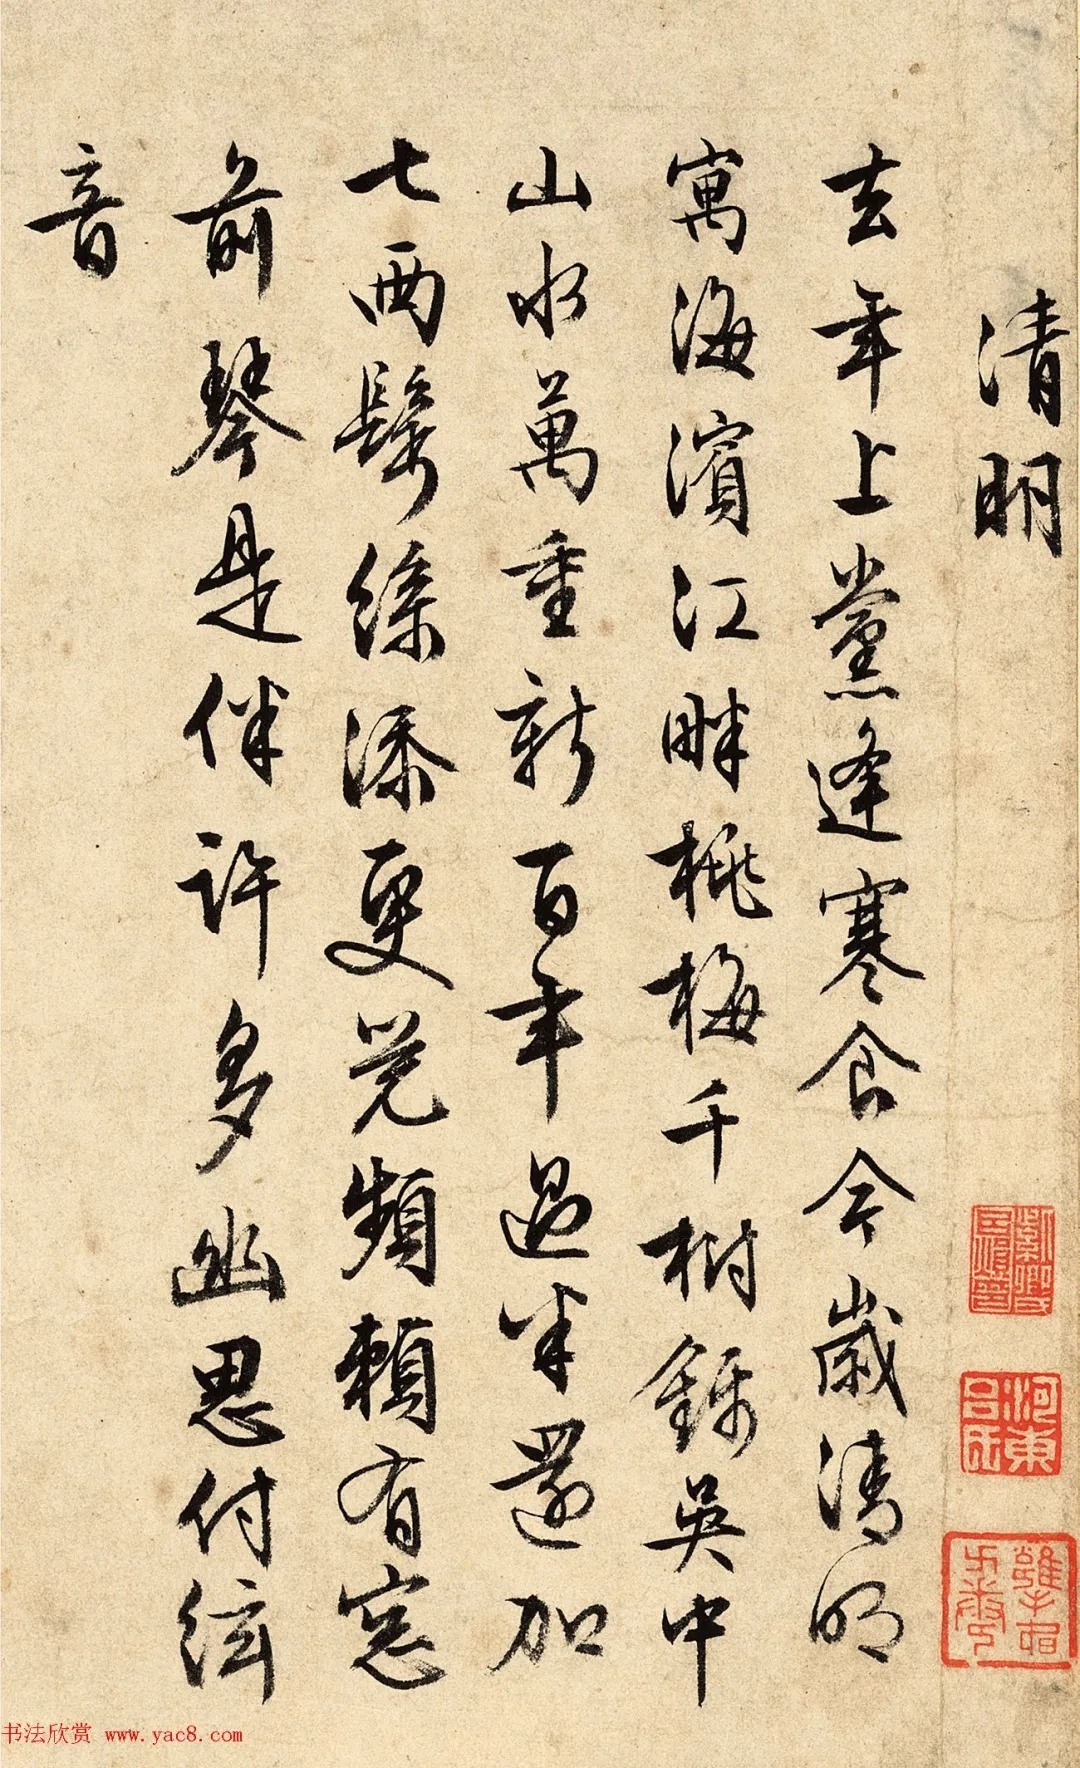 清明
去年上黨逢寒食今歲清明
寓海濱江畔桃梅千樹錦吳中
山水萬重新百年過半還加
七兩鬢絲添更覺頻賴有窓
前琴是伴許多幽思付絃
音
河東呂氏
书法欣赏 www.yac8.com